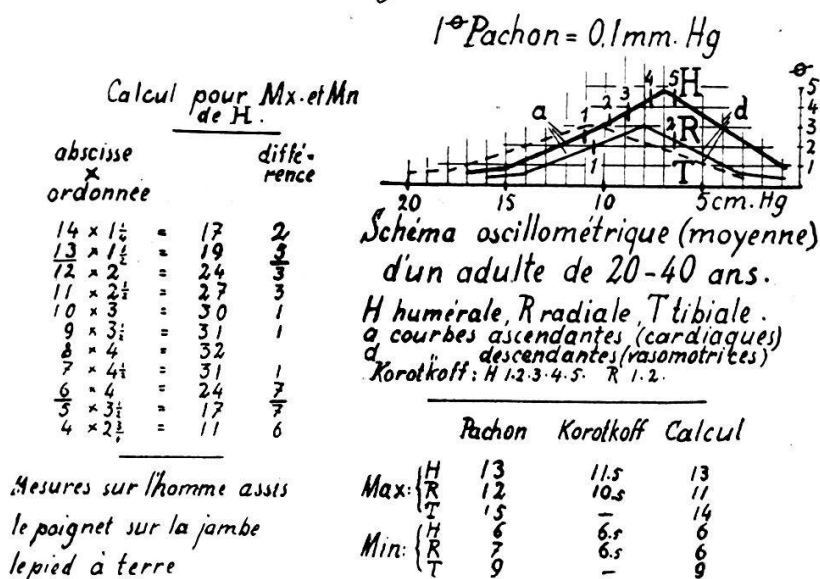 1ᶲ Pachon = 0.1 mm. Hg
Calcul pour Mx. et Mn
de H.
abscisse
×
ordonnée
diffé-
rence
14 × 1 1/4 = 17 2
13 × 1 1/2 = 19 5
12 × 2 = 24 3
11 × 2 1/2 = 27 3
10 × 3 = 30 1
9 × 3 1/2 = 31 1
8 × 4 = 32
7 × 4 1/2 = 31 1
6 × 4 = 24 7
5 × 3 1/2 = 17 7
4 × 2 = 11 6
Mesures sur l'homme assis
le poignet sur la jambe
le pied à terre
H
R
T
a
d
1 2 3 4 5
1 2
ᶲ
5
4
3
2
1
20 15 10 5 cm. Hg
Schéma oscillométrique (moyenne)
d'un adulte de 20-40 ans.
H humérale, R radiale, T tibiale.
a courbes ascendantes (cardiaques)
d " descendantes (vasomotrices)
Korotkoff: H 1.2.3.4.5. R 1.2.
Pachon Korotkoff Calcul
Max: H 13 11.5 13
R 12 10.5 11
T 15 — 14
Min: H 6 6.5 6
R 7 6.5 6
T 9 — 9